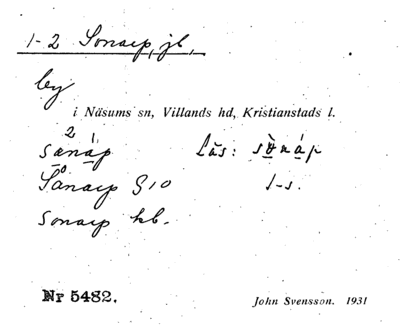 1-2 Sonarp, jb,
by
i Näsums sn, Villands hd, Kristianstads l.
Läs:
Sånarp S10 1-s.
Sonarp kb.
Nr 5482. John Svensson. 1931